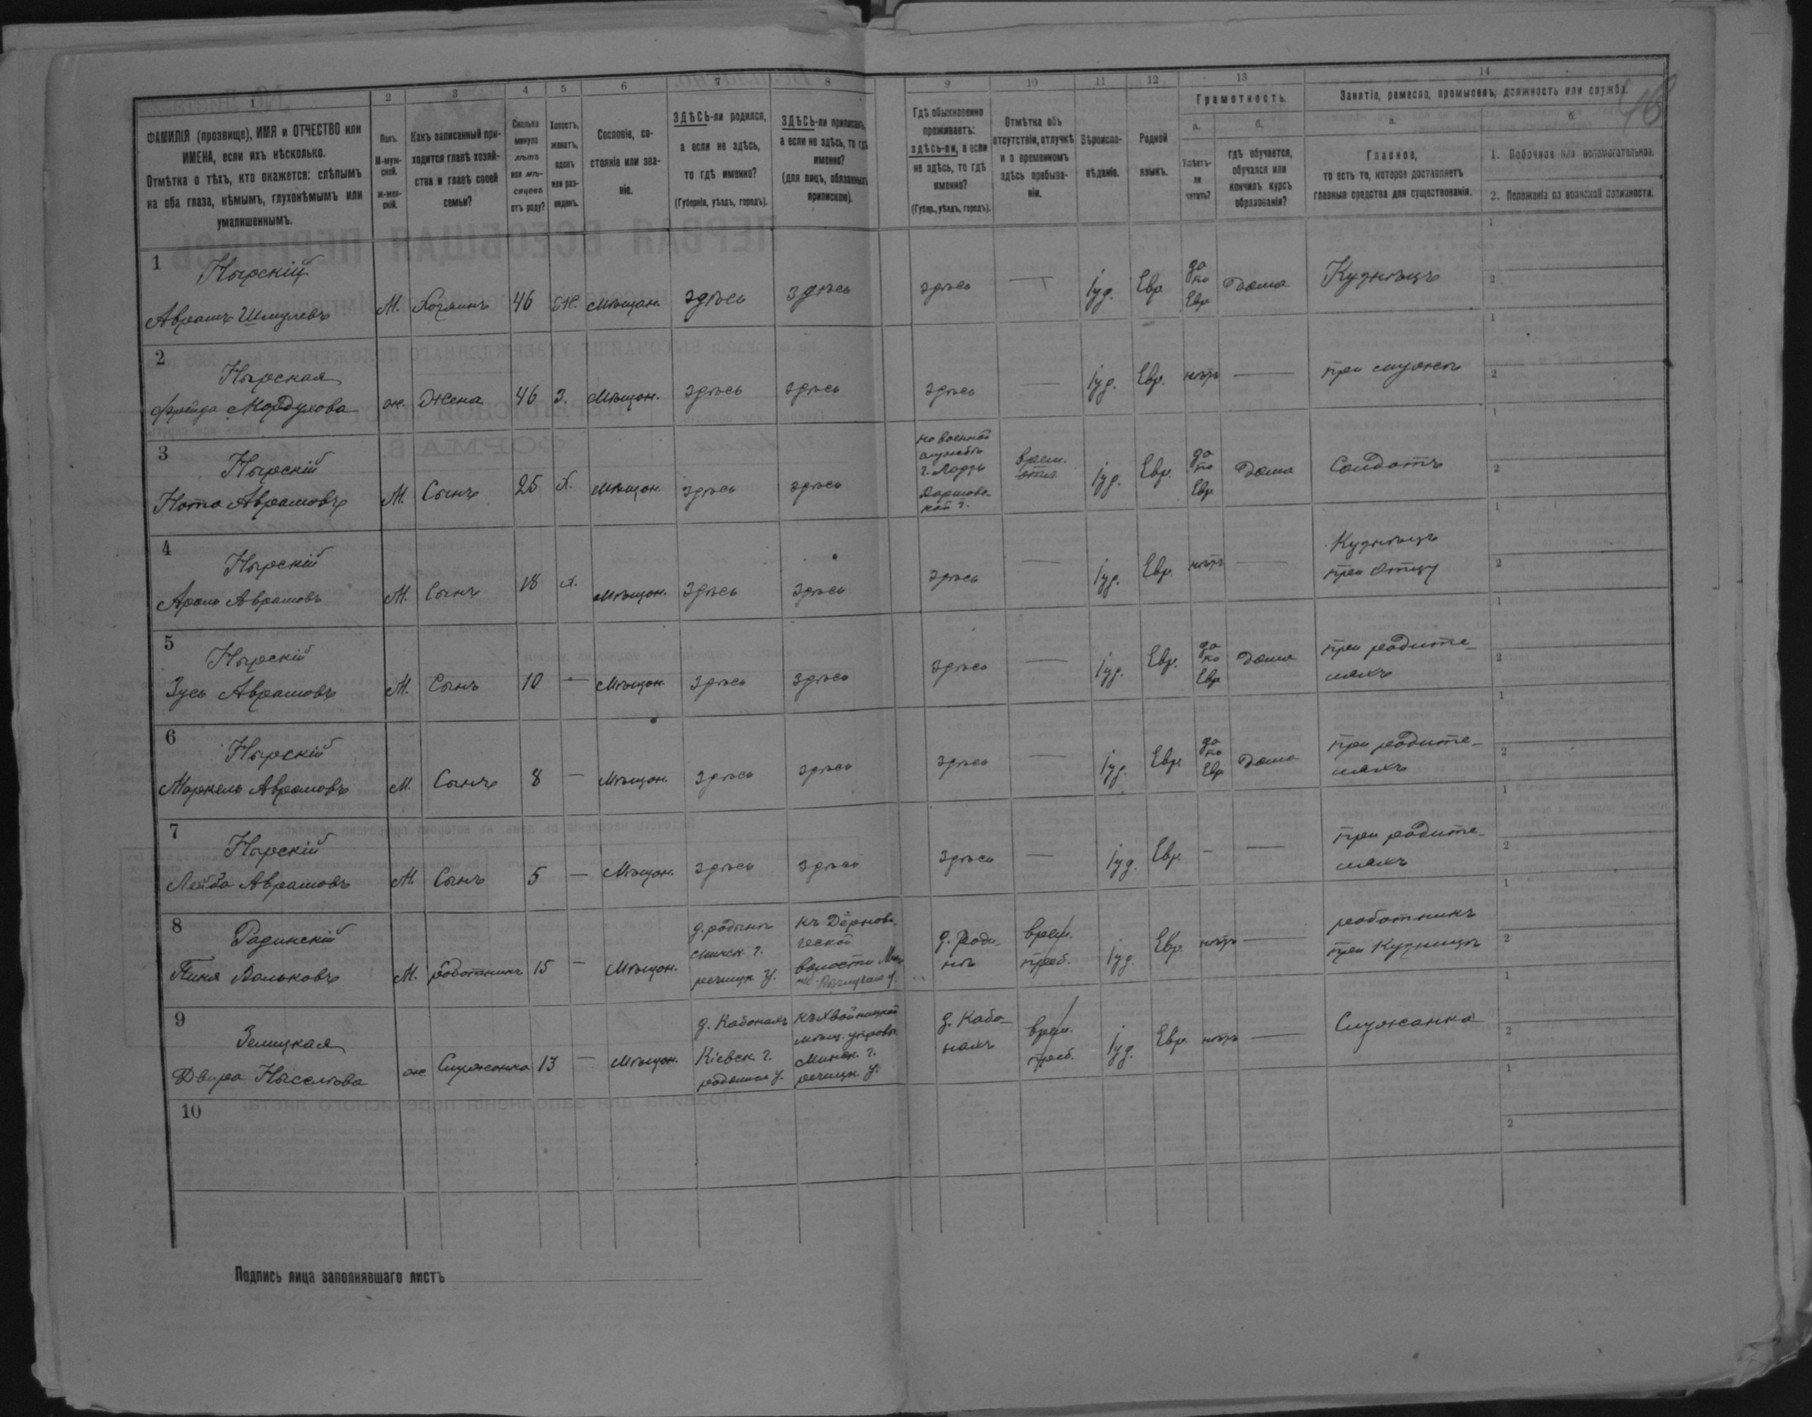 48
1 2 3 4 5 6 7 8 9 10 11 12 13 14
ФАМИЛІЯ (прозвище), ИМЯ и ОТЧЕСТВО или
ИМЕНА, если ихъ нѣсколько.
Отмѣтка о тѣхъ, кто окажется: слѣпымъ
на оба глаза, нѣмымъ, глухонѣмымъ или
умалишеннымъ.
Полъ.
М-мужской.
ж-женскій.
Какъ записанный при-
ходится главѣ хозяй-
ства и главѣ своей
семьи?
Сколько
минуло
лѣтъ
или мѣ-
сяцевъ
отъ роду?
Холостъ,
женатъ,
вдовъ
или раз-
веденъ.
Сословіе, со-
стояніе или зва-
ніе.
ЗДѢСЬ-ли родился,
а если не здѣсь,
то гдѣ именно?
(Губернія, уѣздъ, городъ).
ЗДѢСЬ-ли приписанъ,
а если не здѣсь, то гдѣ
именно?
(для лицъ, обязанныхъ
припискою).
Гдѣ обыкновенно
проживаетъ:
здѣсь-ли, а если
не здѣсь, то гдѣ
именно?
(Губер., уѣздъ, городъ).
Отмѣтка объ
отсутствіи, отлучкѣ
и о временномъ
здѣсь пребыва-
ніи.
Вѣроиспо-
вѣданіе.
Родной
языкъ.
Грамотность.
а. б.
Умѣетъ-
ли
читать?
гдѣ обучается,
обучался или
кончилъ курсъ
образованія?
Занятіе, ремесло, промыселъ, должность или служба.
а. б.
Главное,
то есть то, которое доставляетъ
главныя средства для существованія.
1. Побочное или вспомогательное.
2. Положеніе по воинской повинности.
1 Нырскій
Аврамъ Шмулевъ М. Хозяинъ 46 Ж. мѣщан. здѣсь здѣсь здѣсь — Іуд. Евр. да по Евр дома Кузнецъ
2 Нырская
Фрейда Мордухова ж. Жена 46 З. мѣщан. здѣсь здѣсь здѣсь — Іуд. Евр. нѣтъ — при мужѣ
3 Нырскій
Нота Аврамовъ М. Сынъ 25 х. мѣщан. здѣсь здѣсь на военной службѣ г. Лодзь Варшавской г. врем. Іуд. Евр. да по Евр дома Солдатъ
4 Нырскій
Аврамовъ М. Сынъ 18 х. мѣщан. здѣсь здѣсь здѣсь — Іуд. Евр. нѣтъ — Кузнецъ при отцу
5 Нырскій
Зусь Аврамовъ М. Сынъ 10 — мѣщан. здѣсь здѣсь здѣсь — Іуд. Евр. да по Евр дома при родите-
ляхъ
6 Нырскій
Маркель Аврамовъ М. Сынъ 8 — Мѣщан. здѣсь здѣсь здѣсь — Іуд. Евр. да по Евр дома при родите-
ляхъ
7 Нырскій
Лейба Аврамовъ М. Сынъ 5 — Мѣщан. здѣсь здѣсь здѣсь — Іуд. Евр. — — при родите-
ляхъ
8 Радинскій
М. работникъ 15 — Мѣщан. минск. г. речицк у. волости врем. преб. Іуд. Евр. нѣтъ — работникъ
при Кузницѣ
9 Двера ж Служанка 13 — Мѣщан. д. Кабонахъ Кіевск. г. Минск. г. речицк. у. д. Кабо-
нахъ врем. преб. Іуд. Евр. нѣтъ — Служанка
10
Подпись лица заполнявшаго листъ